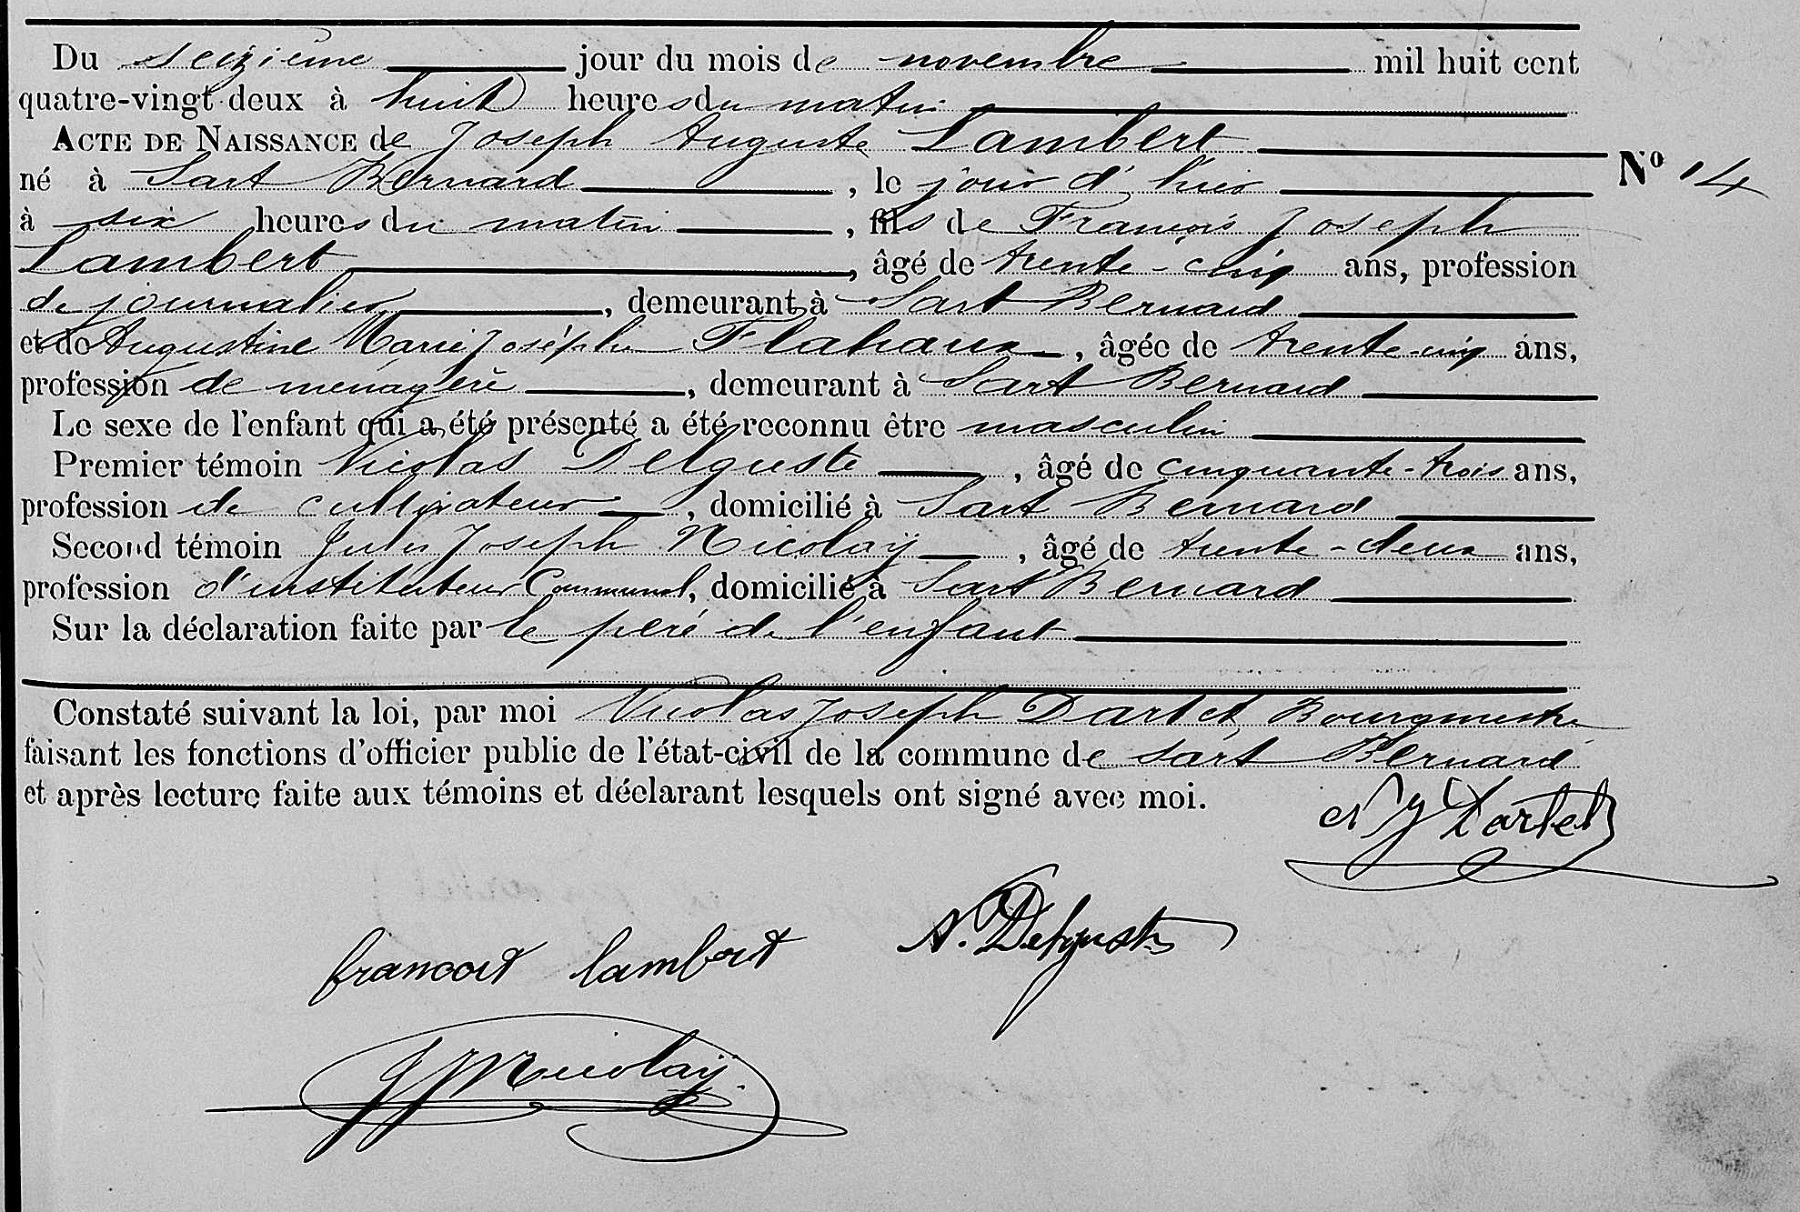 Du seizième jour du mois de novembre mil huit cent
quatre-vingt deux à huit heures du matin
ACTE DE NAISSANCE de Joseph Auguste Lambert
né à Sart Bernard, le jour d'hier
N° 14
à six heures du matin, fils de François Joseph
Lambert, âgé de trente-cinq ans, profession
de journalier, demeurant à Sart Bernard
et de Augustine Marie Josèphe Flahaux, âgée de trente-cinq ans,
profession de ménagère, demeurant à Sart Bernard
Le sexe de l'enfant qui a été présenté a été reconnu être masculin
Premier témoin Nicolas Delguste, âgé de cinquante-trois ans,
profession de cultivateur, domicilié à Sart Bernard
Second témoin Jules Joseph Nicolaÿ, âgé de trente-deux ans,
profession d'instituteur Communal, domicilié à Sart Bernard
Sur la déclaration faite par le père de l'enfant
Constaté suivant la loi, par moi Nicolas Joseph Dartet, Bourgmestre
faisant les fonctions d'officier public de l'état-civil de la commune de Sart Bernard
et après lecture faite aux témoins et déclarant lesquels ont signé avec moi.
N J Dartet
N. Delguste
francoit lambert
J J Nicolaÿ